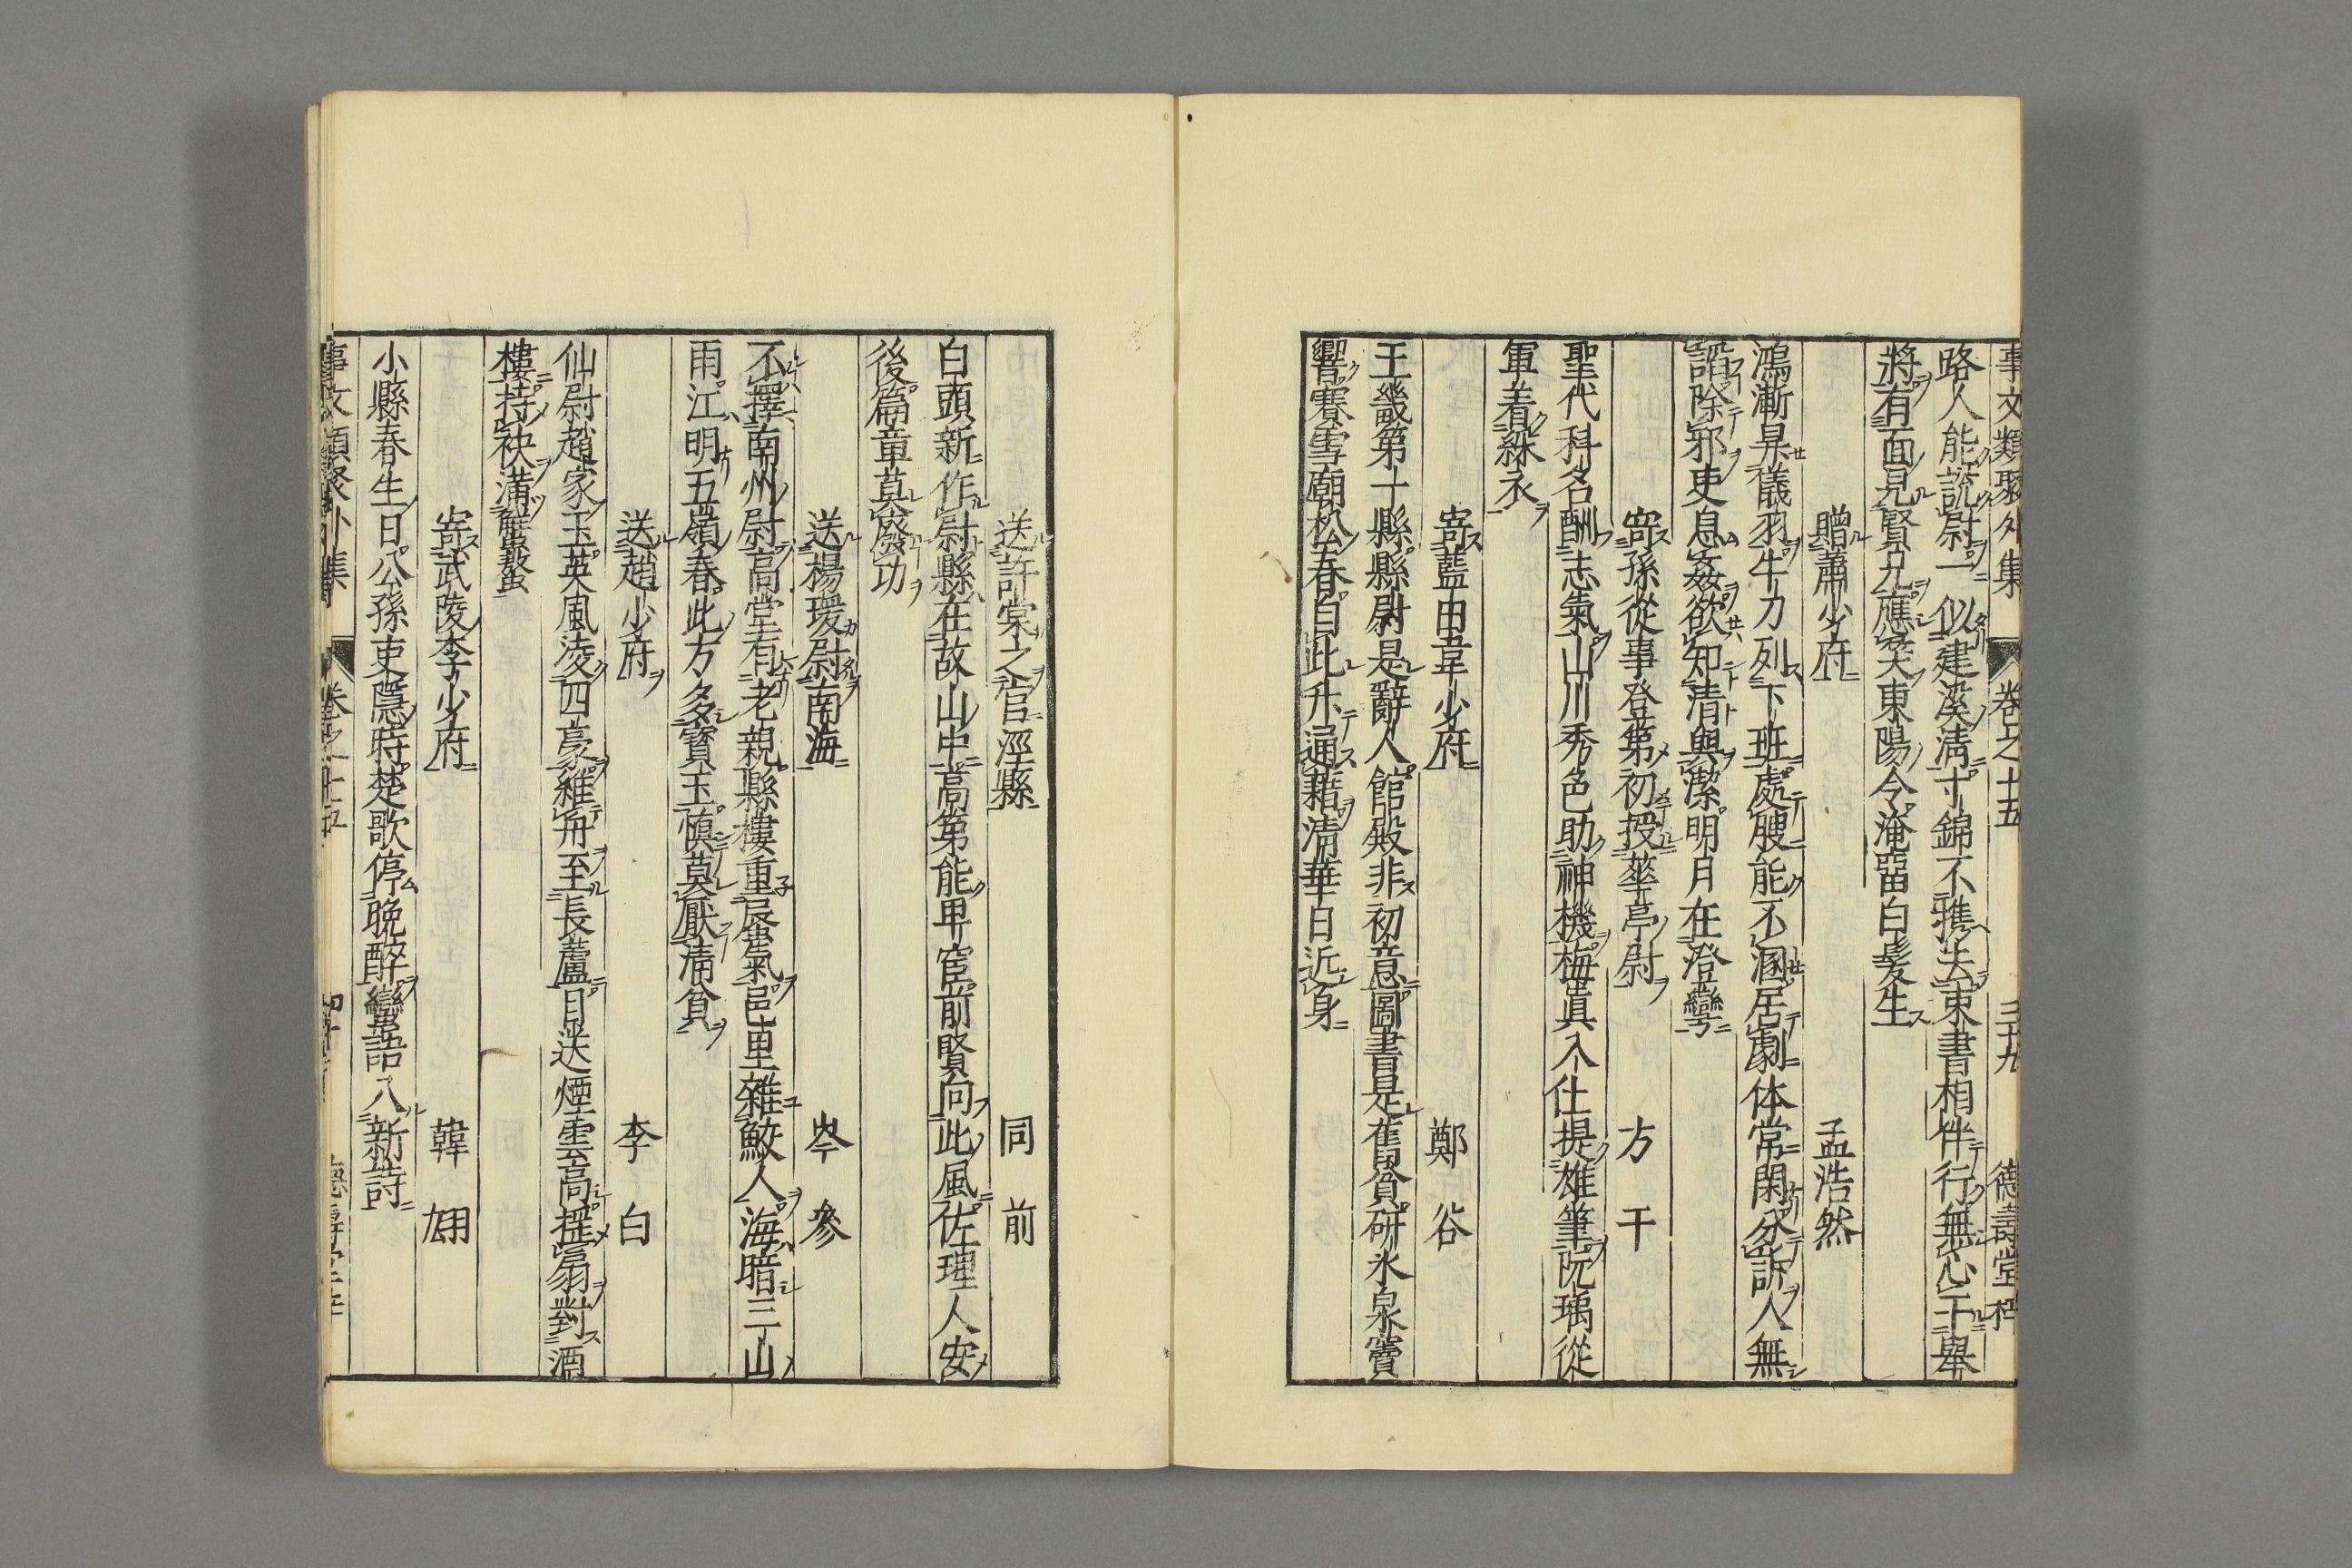 事文類聚外集 卷之十五 三十九 德壽堂梓
路人能說尉一似建溪清寸錦不攜去束書相伴行無心干舉
將有面見賢兄應笑東陽令淹留白髮生
贈蕭少府 孟浩然
鴻漸昇儀羽牛刀列下班處腴能不溷居劇体常閑分訴人無
謟除邪吏息姦欲知清與潔明月在澄彎
寄孫從事登第初授華亭尉 方干
聖代科名酬志氣山川秀色助神機梅眞入仕提雄筆阮瑀從
軍着綵衣
寄藍田韋少府 鄭谷
王畿第一縣縣尉是辭人館殿非初意圖書是舊貧研氷泉竇
響賽雪廟松春自此升通籍清華日近身
送許棠之官涇縣 同前
白頭新作尉縣在故山中高第能卑宦前賢向此風佐理人安
後篇章莫廢功
送楊瑗尉南海 岑參
不擇南州尉高堂有老親縣樓重蜃氣邑里雜鮫人海暗三山
雨江明五嶺春此方多寶玉愼莫厭清貧
送趙少府 李白
仙尉趙家玉英風凌四豪維舟至長蘆目送煙雲高搖扇對酒
樓持袂溝蟹螯
寄武陵李少府 韓翃
小縣春生日公孫吏隱時楚歌停晚醉蠻語入新詩
事文類聚外集 卷之十五